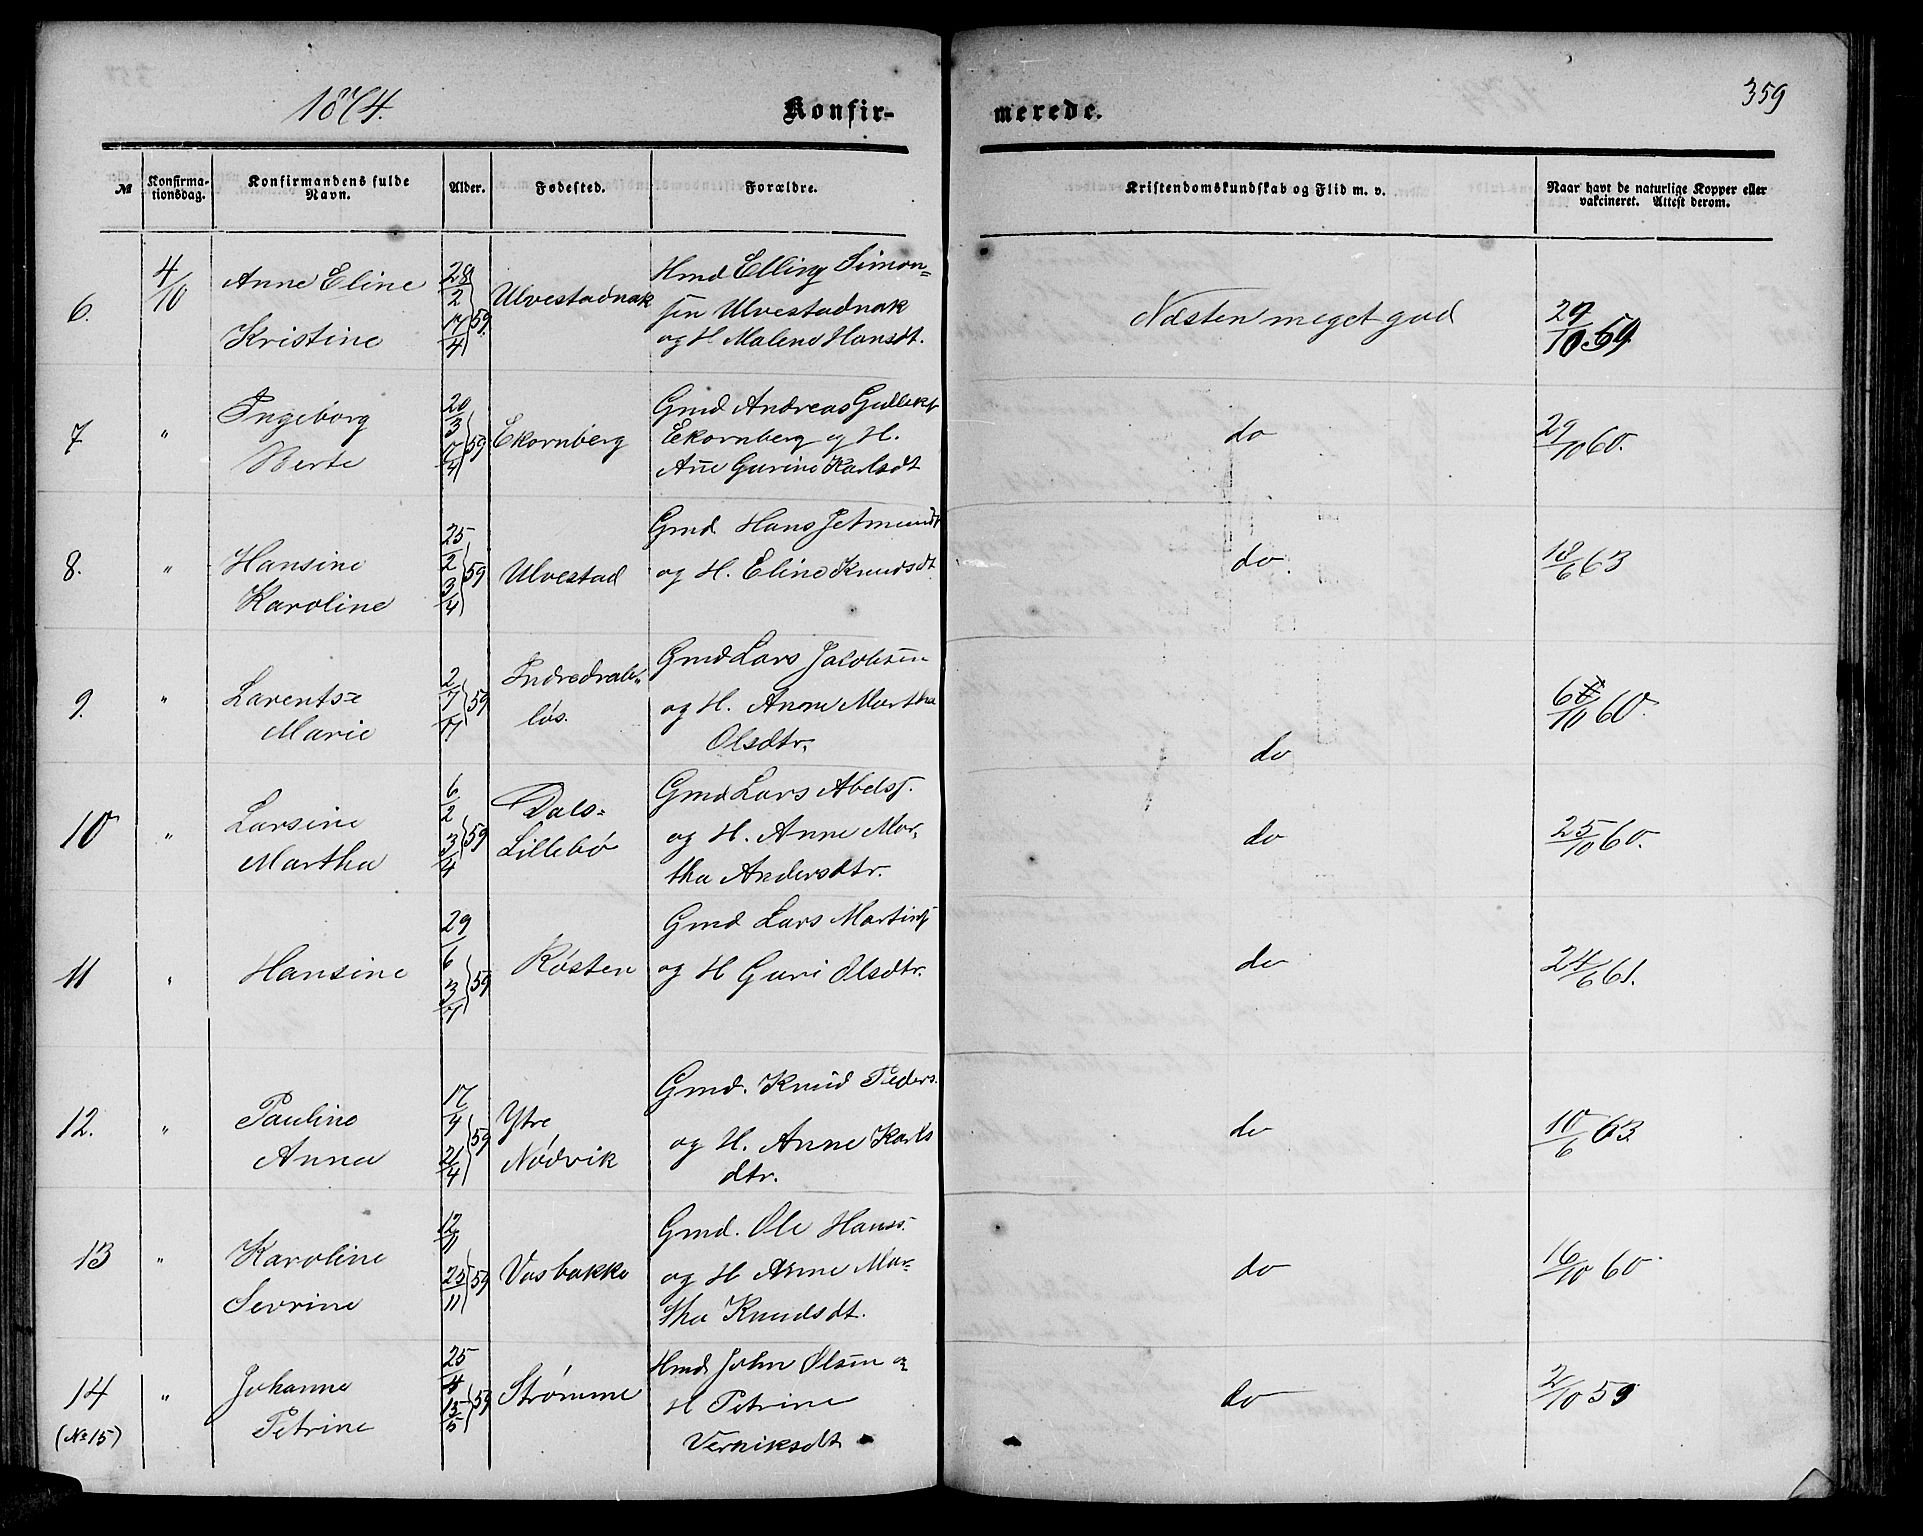 1874.
Konfir-
merede.
359
№
Konfirma-
tionsdag.
Konfirmandens fulde
Navn.
Alder.
Fødested.
Forældre.
Kristendomskundskab og Flid m. v.
Naar havt de naturlige Kopper eller
vakcineret. Attest derom.
6.
4/10
Anne Eline
Kristine
28/2
17/4 } 59
Ulvestadnak
Hmd Elling Simon=
sen Ulvestadnak
og H. Malene Hansdt.
Næsten meget god
29/10 59.
7
"
Ingeborg
Berte
20/3
17/4 } 59
Ekornberg
Gmd Andreas Gullikss
Ekornberg og H.
Ane Gurine Karlsdt
do
29/10 60.
8.
"
Hansine
Karoline
25/2
3/4 } 59
Ulvestad
Gmd Hans Jetmunds
og H. Eline Knudsdt.
do.
18/6 63
9.
"
Larents=
Marie
2/7
/7 } 59
Indredrab-
løs.
Gmd Lars Jacobsen
og H. Anne Martha
Olsdtr.
do
6/10 60.
10
"
Larsine
Martha
6/2
3/4 } 59
Dals=
Lillebø
Gmd Lars Abelss.
og H. Anne Mar-
tha Andersdtr.
do
25/10 60.
11
"
Hansine
29/6
3/7 } 59
Røsten
Gmd Lars Martinss
og H Guri Olsdtr.
do
24/6 61.
12.
"
Pauline
Anna
17/4
21/4 } 59
Ytre
Nødvik
Gmd. Knud Peders.
og H. Anne Karls
dtr.
do
10/6 63
13
"
Karoline
Sevrine
12/11
25/11 } 59
Vasbakke
Gmd. Ole Hanss.
og H Anne Mar-
tha Knudsdt.
do
16/10 60
14
(№ 15)
"
Johanne
Petrine
25/4
15/5 } 59
Strømme
Hmd John Olsen og
H Petrine
Verniksdt
do
2/10 59